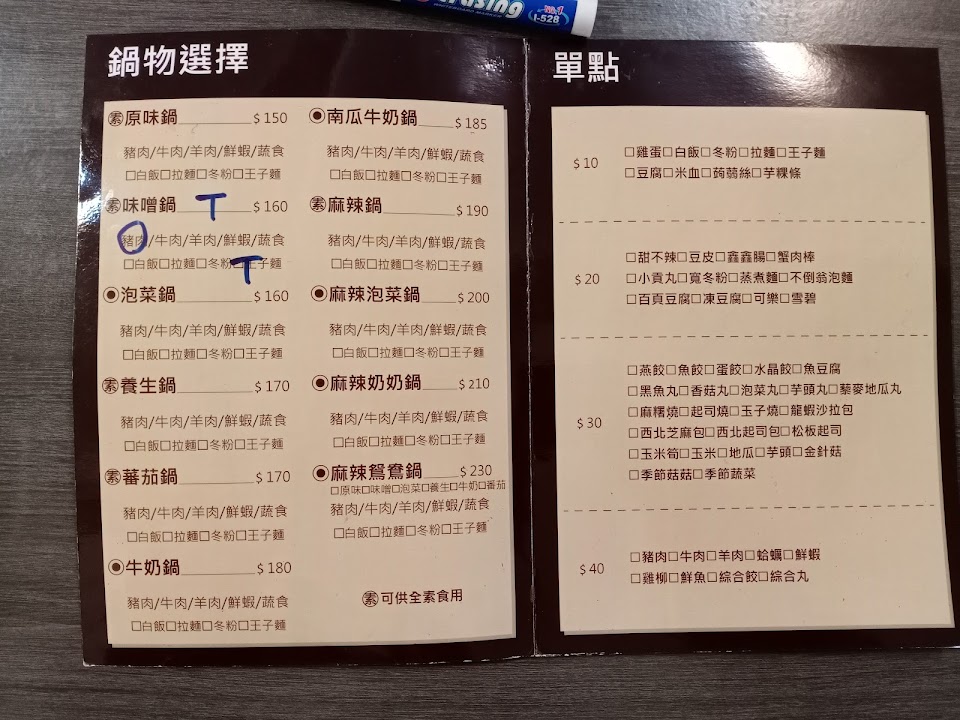 No.1
I-528
鍋物選擇
㊙素原味鍋 $150
豬肉/牛肉/羊肉/鮮蝦/蔬食
□白飯□拉麵□冬粉□王子麵
素味噌鍋 T $160
豬肉/牛肉/羊肉/鮮蝦/蔬食
□白飯□拉麵□冬粉T子麵
泡菜鍋 $160
豬肉/牛肉/羊肉/鮮蝦/蔬食
□白飯□拉麵□冬粉□王子麵
素養生鍋 $170
豬肉/牛肉/羊肉/鮮蝦/蔬食
□白飯□拉麵□冬粉□王子麵
素蕃茄鍋 $170
豬肉/牛肉/羊肉/鮮蝦/蔬食
□白飯□拉麵□冬粉□王子麵
牛奶鍋 $180
豬肉/牛肉/羊肉/鮮蝦/蔬食
□白飯□拉麵□冬粉□王子麵
南瓜牛奶鍋 $185
豬肉/牛肉/羊肉/鮮蝦/蔬食
□白飯□拉麵□冬粉□王子麵
素麻辣鍋 $190
豬肉/牛肉/羊肉/鮮蝦/蔬食
□白飯□拉麵□冬粉□王子麵
麻辣泡菜鍋 $200
豬肉/牛肉/羊肉/鮮蝦/蔬食
□白飯□拉麵□冬粉□王子麵
麻辣奶奶鍋 $210
豬肉/牛肉/羊肉/鮮蝦/蔬食
□白飯□拉麵□冬粉□王子麵
麻辣鴛鴦鍋 $230
□原味□味噌□泡菜□養生□牛奶□番茄
豬肉/牛肉/羊肉/鮮蝦/蔬食
□白飯□拉麵□冬粉□王子麵
素可供全素食用
單點
$10
□雞蛋□白飯□冬粉□拉麵□王子麵
□豆腐□米血□蒟蒻絲□芋粿條
$20
□甜不辣□豆皮□鑫鑫腸□蟹肉棒
□小貢丸□寬冬粉□蒸煮麵□不倒翁泡麵
□百頁豆腐□凍豆腐□可樂□雪碧
$30
□燕餃□魚餃□蛋餃□水晶餃□魚豆腐
□黑魚丸□香菇丸□泡菜丸□芋頭丸□藜麥地瓜丸
□麻糬燒□起司燒□玉子燒□龍蝦沙拉包
□西北芝麻包□西北起司包□松板起司
□玉米筍□玉米□地瓜□芋頭□金針菇
□季節菇菇□季節蔬菜
$40
□豬肉□牛肉□羊肉□蛤蠣□鮮蝦
□雞柳□鮮魚□綜合餃□綜合丸